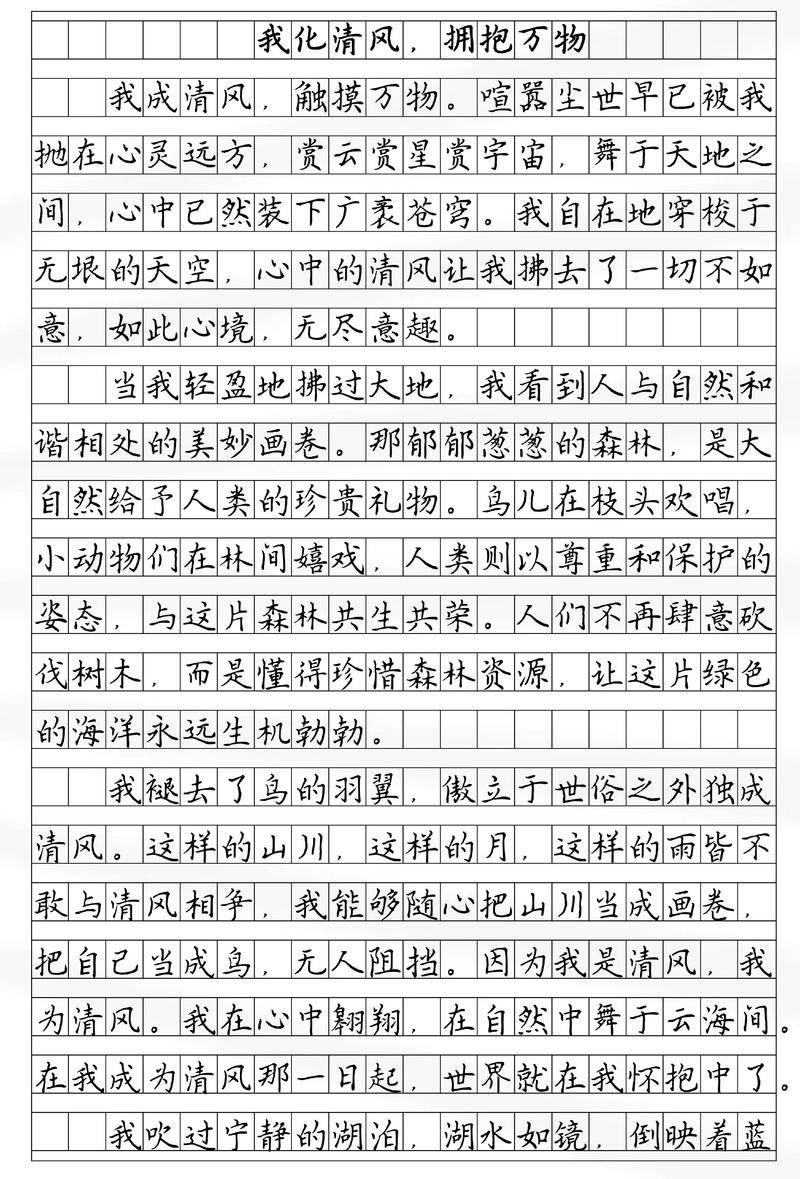 我化清风，拥抱万物
我成清风，触摸万物。喧嚣尘世早已被我
抛在心灵远方，赏云赏星赏宇宙，舞于天地之
间，心中已然装下广袤苍穹。我自在地穿梭于
无垠的天空，心中的清风让我拂去了一切不如
意，如此心境，无尽意趣。
当我轻盈地拂过大地，我看到人与自然和
谐相处的美妙画卷。那郁郁葱葱的森林，是大
自然给予人类的珍贵礼物。鸟儿在枝头欢唱，
小动物们在林间嬉戏，人类则以尊重和保护的
姿态，与这片森林共生共荣。人们不再肆意砍
伐树木，而是懂得珍惜森林资源，让这片绿色
的海洋永远生机勃勃。
我褪去了鸟的羽翼，傲立于世俗之外独成
清风。这样的山川，这样的月，这样的雨皆不
敢与清风相争，我能够随心把山川当成画卷，
把自己当成鸟，无人阻挡。因为我是清风，我
为清风。我在心中翱翔，在自然中舞于云海间。
在我成为清风那一日起，世界就在我怀抱中了。
我吹过宁静的湖泊，湖水如镜，倒映着蓝